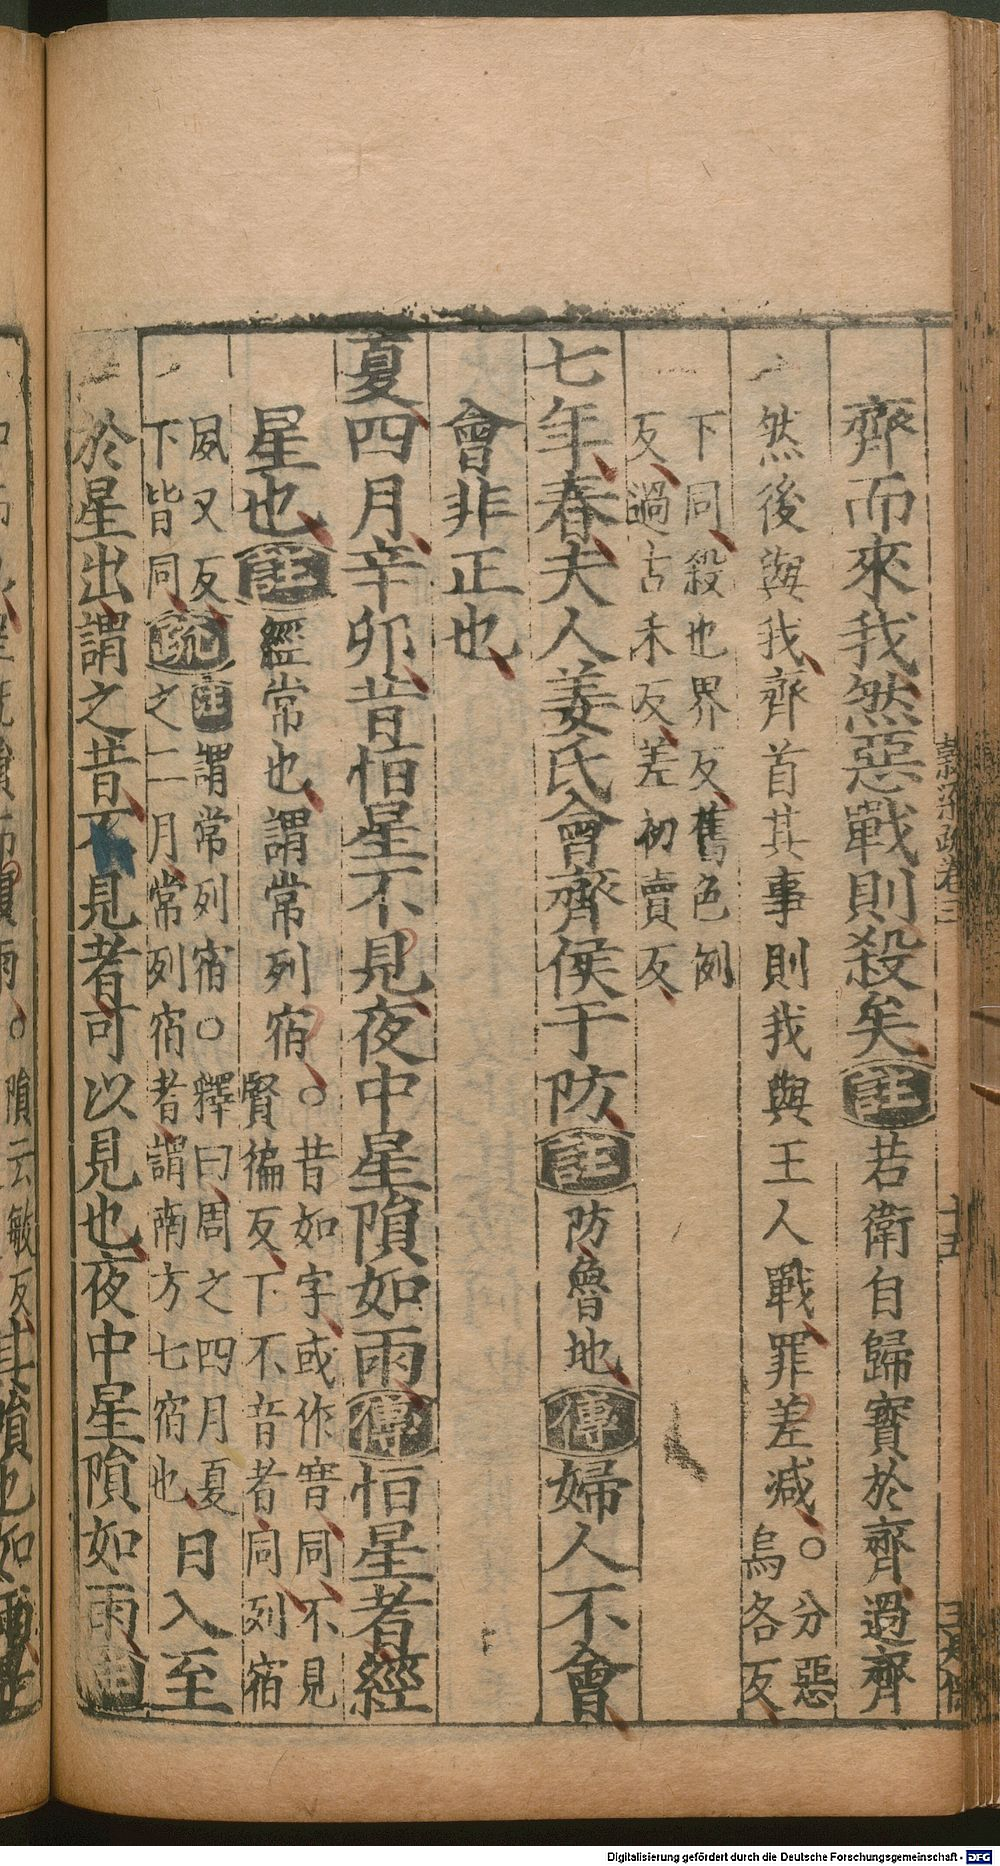 齊而來我然惡戰則殺矣註若衛自歸寶於齊過齊
然後與我齊首其事則我與王人戰罪差减○分惡烏各反
下同殺也界反舊色例反過古禾反差初賣反
七年春夫人姜氏會齊侯于防註防魯地傳婦人不會
會非正也
夏四月辛卯昔恒星不見夜中星隕如雨傳恒星者經
星也註經常也謂常列宿○昔如字或作㫺同不見賢徧反下不音者同列宿
夙又反下皆同疏註謂常列宿○釋曰周之四月夏之二月常列宿者謂南方七宿也日入至
於星出謂之昔不見者可以見也夜中星隕如雨註
十五
Digitalisierung gefördert durch die Deutsche Forschungsgemeinschaft - DFG